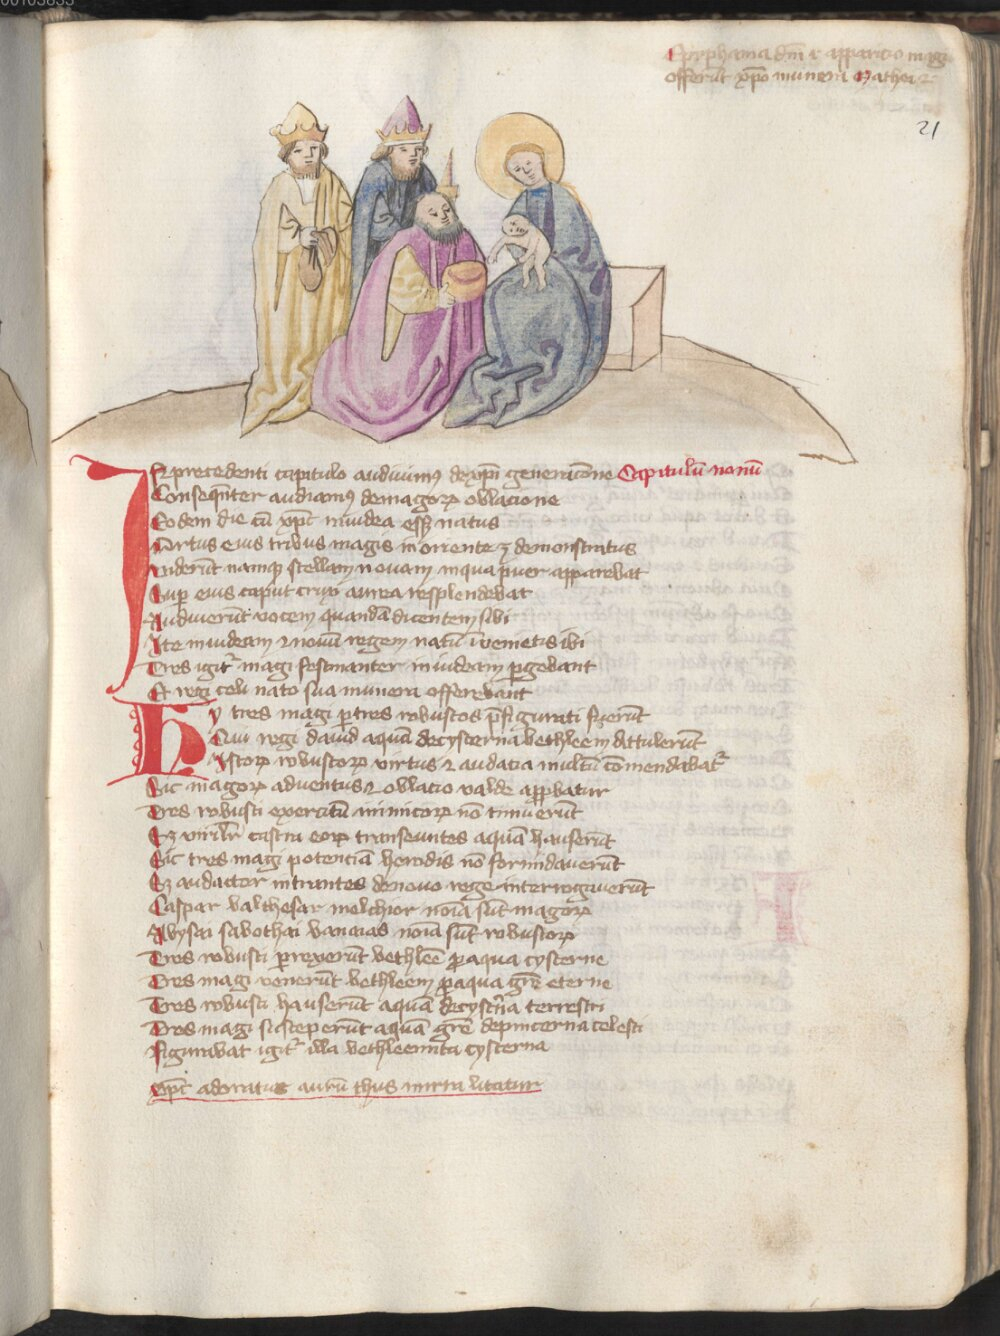 00103633
Epyphania dm̄ et apparitio magi
offerūt xp̄o munera Mathei 2
21
In precedenti capitulo audiuimꝰ de xp̄i generacōne Capitulū nonū
Conseqn̄ter audiamꝰ de magoꝝ oblacione
Eodem die cū xp̄c in iudea esset natus
Ortus eius tribus magis in oriente ꝫ demonstratus
Viderūt namqꝫ stellam nouam in qua puer apparebat
Sup eius caput crux aurea resplendebat
Audiuerūt vocem quandā dicentem sibi
Ite in iudeam ⁊ nouū regem natū īuenietis ibi
Tres igit᷑ magi festinanter in iudeam p̱gebant
Et regi celi nato sua munera offerebant
Hy tres magi p̱ tres robustos p̄figurati fuerūt
Qui regi dauid aquā de cysterna bethleem attulerūt
Istoꝝ robustoꝝ virtus ⁊ audatia multū cōmendabat᷑
Sic magoꝝ aduentus ⁊ oblacio valde app̱batur
Tres robusti exercitū inimicoꝝ nō timuerūt
Et virilr̄ castra eoꝝ transeuntes aquā hauserūt
Sic tres magi potenciā herodis nō formidauerūt
Et audacter intrantes de nouo rege interrogauerūt
Caspar balthesar melchior noīa sūt magoꝝ
Abysai sabothai banaias noīa sūt robustoꝝ
Tres robusti p̱rexerūt bethleē ꝓ aqua cysterne
Tres magi venerūt bethleem ꝓ aqua grē eterne
Tres robusti hauserūt aquā de cystn̄a terrestri
Tres magi susceperūt aquā grē de pincerna celesti
Figurabat igit᷑ illa bethleemita cysterna
Xp̄c adoratus aurū thus mirra litatur